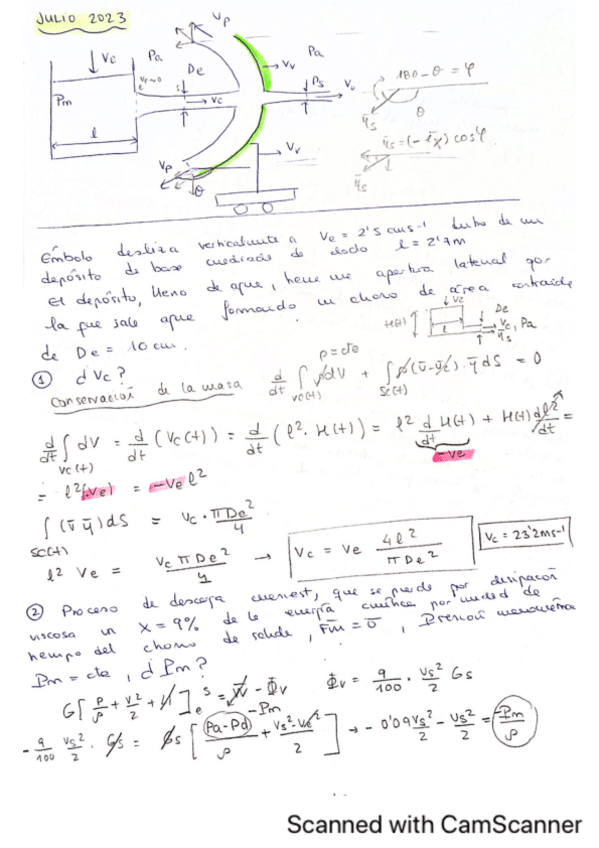 JULIO 2023
Vp
Vc Pa Pa
De Vv Ps
Pm Vc Vs 180-θ = φ
l θ
Vp Vv ūs = (-ēx) cosφ
θ ūs
Émbolo desliza verticalmente a Ve = 2'5 cm s⁻¹ dentro de un
depósito de base cuadrada de lado l = 2'7m
El depósito, lleno de agua, tiene una apertura lateral por
la que sale agua formando un chorro de área contraída
de De = 10 cm.
H(t) l Ve De Vc, Pa
① ¿Vc?
Conservación de la masa d/dt ∫ ρdV + ∫ ρ(v̄-v̄c)·n̄ dS = 0
ρ=cte
Vc(t) Sc(t)
d/dt ∫ dV = d/dt (Vc(t)) = d/dt (l²·H(t)) = l² d/dt H(t) + H(t) dl²/dt =
Vc(t) -Ve
= l²(-Ve) = -Ve l²
∫ (v̄ n̄)dS = Vc · πDe²/4
Sc(t)
l² Ve = Vc π De²/4 → Vc = Ve 4l²/πDe² Vc = 23'2ms⁻¹
② Proceso de descarga cuasiest, que se pierde por disipación
viscosa un X = 9% de la energía cinética por unidad de
tiempo del chorro de salida, F̄m = 0̄, Presión manométrica
Pm = cte, ¿Pm?
G[P/ρ + v²/2 + U]ₑˢ = W - Φv Φv = 9/100 · Vs²/2 Gs
-Pm
-9/100 Vs²/2 · Gs = Gs [(Pa-Pd)/ρ + (Vs²-Ve²)/2] → -0'09Vs²/2 - Vs²/2 = -Pm/ρ
Scanned with CamScanner